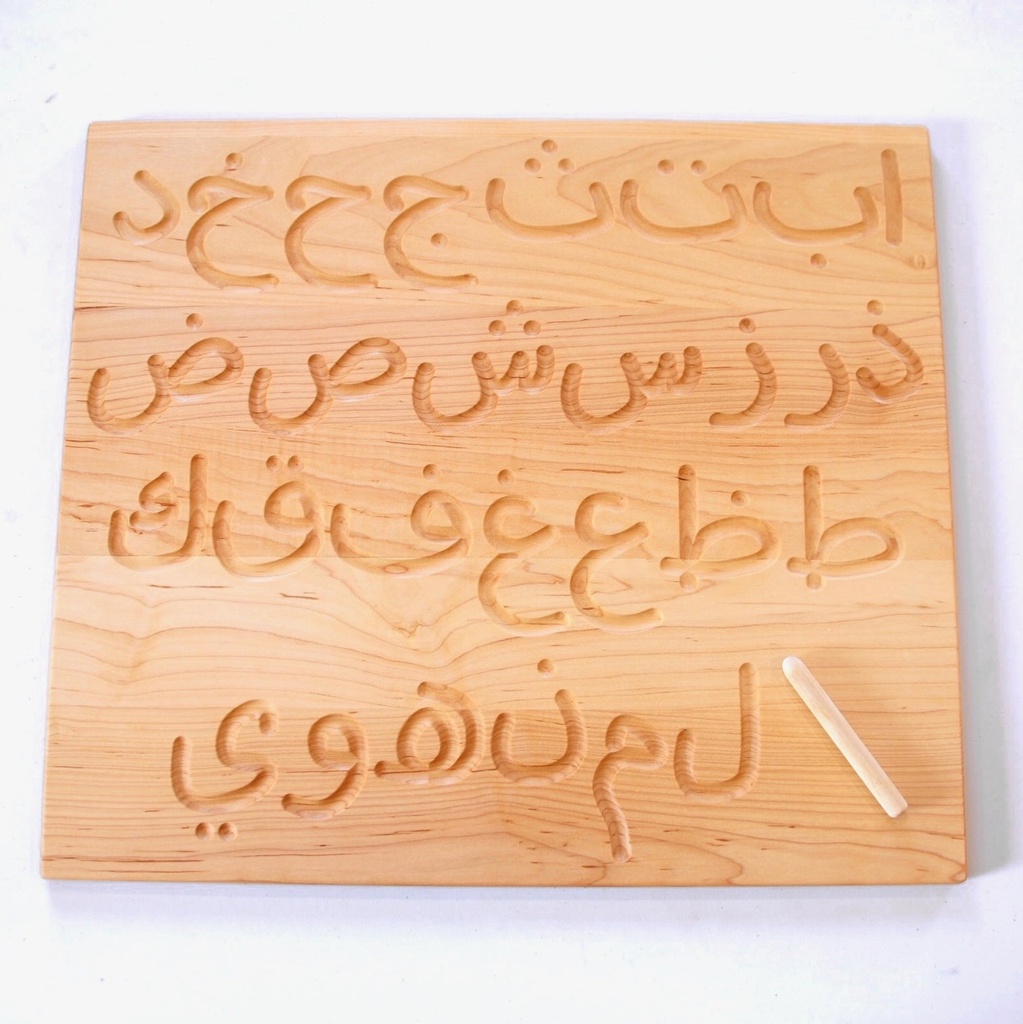 ا ب ت ث ج ح خ د
ذ ر ز س ش ص ض
ط ظ ع غ ف ق ك
ل م ن ه و ي